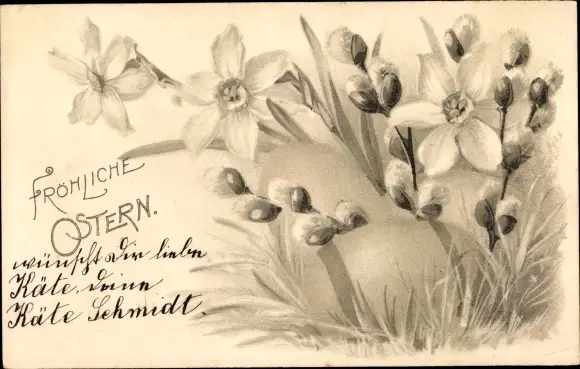 FRÖHLICHE
OSTERN.
wünscht Dir liebe
Käte, deine
Käte Schmidt.